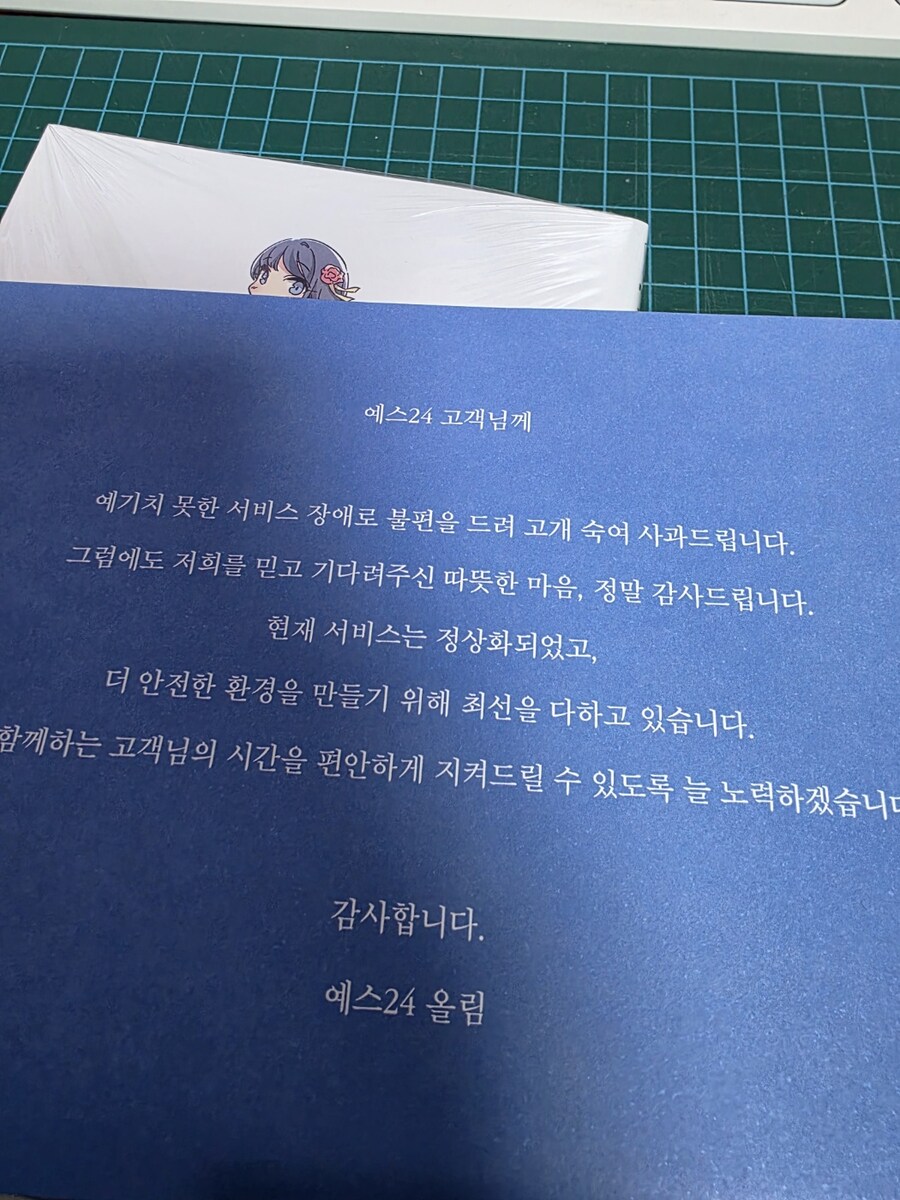 예스24 고객님께
예기치 못한 서비스 장애로 불편을 드려 고개 숙여 사과드립니다.
그럼에도 저희를 믿고 기다려주신 따뜻한 마음, 정말 감사드립니다.
현재 서비스는 정상화되었고,
더 안전한 환경을 만들기 위해 최선을 다하고 있습니다.
함께하는 고객님의 시간을 편안하게 지켜드릴 수 있도록 늘 노력하겠습니다
감사합니다.
예스24 올림